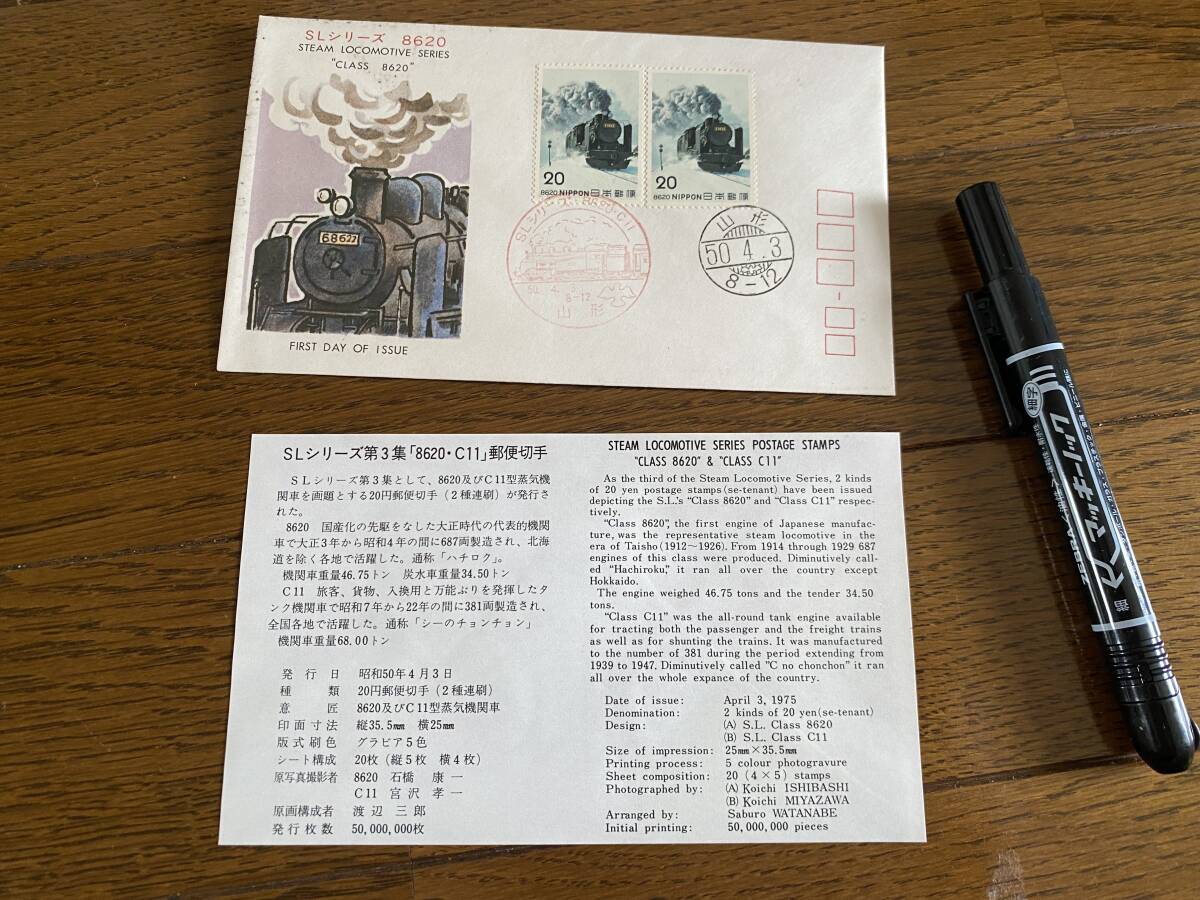 SLシリーズ 8620
STEAM LOCOMOTIVE SERIES
"CLASS 8620"
68622
FIRST DAY OF ISSUE
20
8620 NIPPON 日本郵便
20
8620 NIPPON 日本郵便
SLシリーズ 8620・C11
50. 4. 3.
8-12
山形
山形
50 4.3
8-12
SLシリーズ第3集「8620・C11」郵便切手
SLシリーズ第3集として、8620及びC11型蒸気機
関車を画題とする20円郵便切手(2種連刷)が発行さ
れた。
8620 国産化の先駆をなした大正時代の代表的機関
車で大正3年から昭和4年の間に687両製造され、北海
道を除く各地で活躍した。通称「ハチロク」。
機関車重量46.75トン 炭水車重量34.50トン
C11 旅客、貨物、入換用と万能ぶりを発揮したタ
ンク機関車で昭和7年から22年の間に381両製造され、
全国各地で活躍した。通称「シーのチョンチョン」
機関車重量68.00トン
発行日 昭和50年4月3日
種類 20円郵便切手(2種連刷)
意匠 8620及びC11型蒸気機関車
印面寸法 縦35.5㎜ 横25㎜
版式刷色 グラビア5色
シート構成 20枚(縦5枚 横4枚)
原写真撮影者 8620 石橋 康一
C11 宮沢 孝一
原画構成者 渡辺 三郎
発行枚数 50,000,000枚
STEAM LOCOMOTIVE SERIES POSTAGE STAMPS
"CLASS 8620" & "CLASS C11"
As the third of the Steam Locomotive Series, 2 kinds
of 20 yen postage stamps(se-tenant) have been issued
depicting the S.L.'s "Class 8620" and "Class C11" respec-
tively.
"Class 8620", the first engine of Japanese manufac-
ture, was the representative steam locomotive in the
era of Taisho(1912～1926). From 1914 through 1929 687
engines of this class were produced. Diminutively call-
ed "Hachiroku," it ran all over the country except
Hokkaido.
The engine weighed 46.75 tons and the tender 34.50
tons.
"Class C11" was the all-round tank engine available
for tracting both the passenger and the freight trains
as well as for shunting the trains. It was manufactured
to the number of 381 during the period extending from
1939 to 1947. Diminutively called "C no chonchon" it ran
all over the whole expance of the country.
Date of issue: April 3, 1975
Denomination: 2 kinds of 20 yen(se-tenant)
Design: (A) S.L. Class 8620
(B) S.L. Class C11
Size of impression: 25㎜×35.5㎜
Printing process: 5 colour photogravure
Sheet composition: 20 (4×5) stamps
Photographed by: (A) Koichi ISHIBASHI
(B) Koichi MIYAZAWA
Arranged by: Saburo WATANABE
Initial printing: 50,000,000 pieces